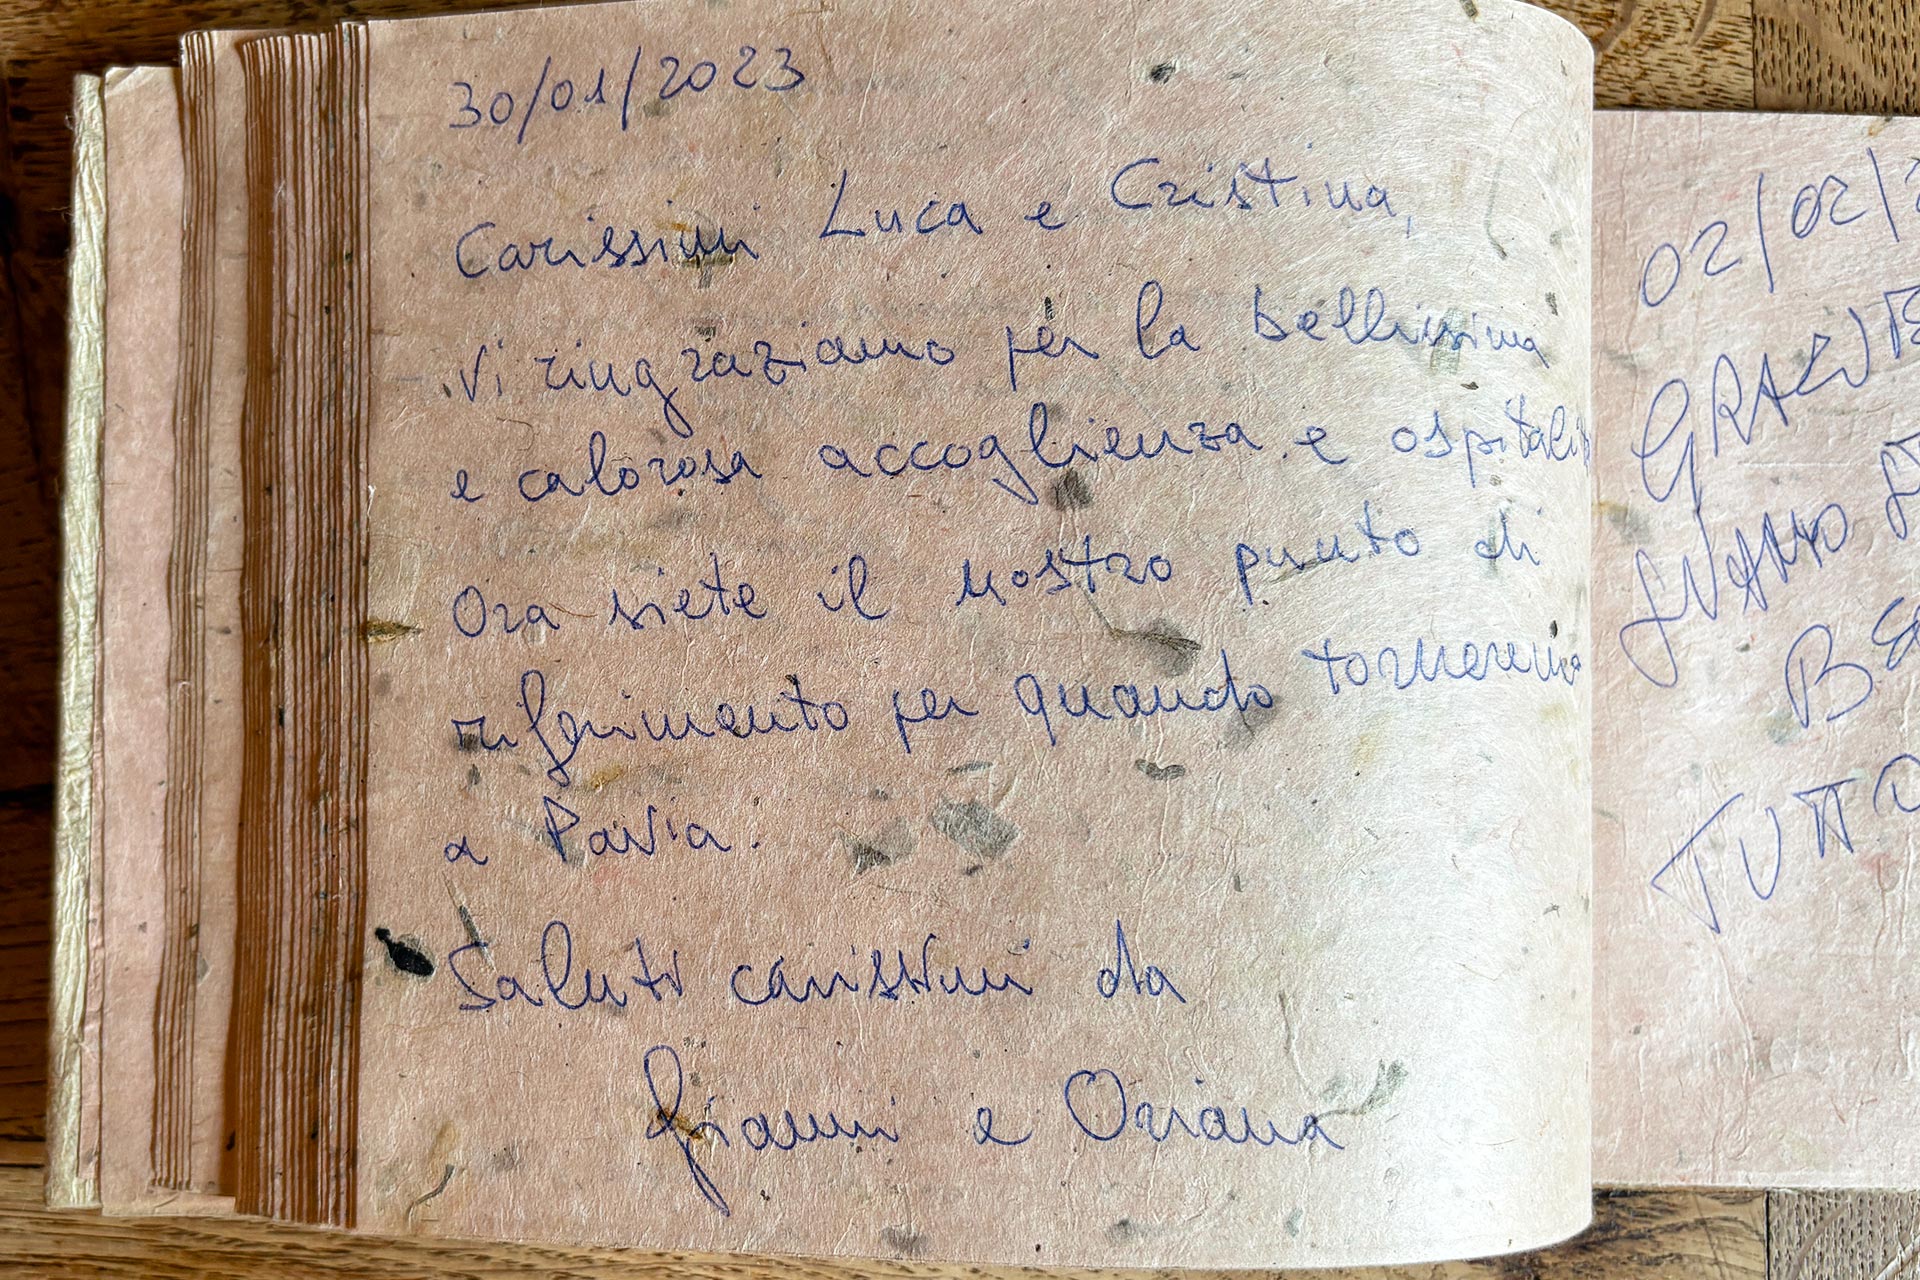 30/01/2023
Carissimi Luca e Cristina,
Vi ringraziamo per la bellissima
e calorosa accoglienza e ospitalità
Ora siete il nostro punto di
riferimento per quando torneremo
a Pavia.
Saluti carissimi da
Gianni e Oriana
02/02/2
GRAZIE
TUTTO